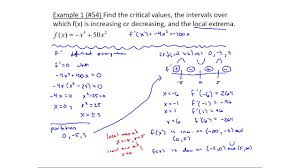 Example 1 (#54) Find the critical values, the intervals over
which f(x) is increasing or decreasing, and the local extrema.
f(x) = -x⁴ + 50x²
f'(x) = -4x³ + 100x
f' defined everywhere
f' = 0 when
-4x³ + 100x = 0
-4x(x² - 25) = 0
-4x = 0 x² - 25 = 0
x = 0 x² = 25
x = ±5
partition
0, -5, 5
x = -6 f'(-6) = 264
x = -1 f'(-1) = -96
x = 1 f'(1) = 96
x = 6 f'(6) = -264
local max at
x = -5, x = 5
local min at
x = 0
f(x) is inc on (-∞, -5) and
(0, 5)
f(x) is dec on (-5, 0) and
(5, ∞)